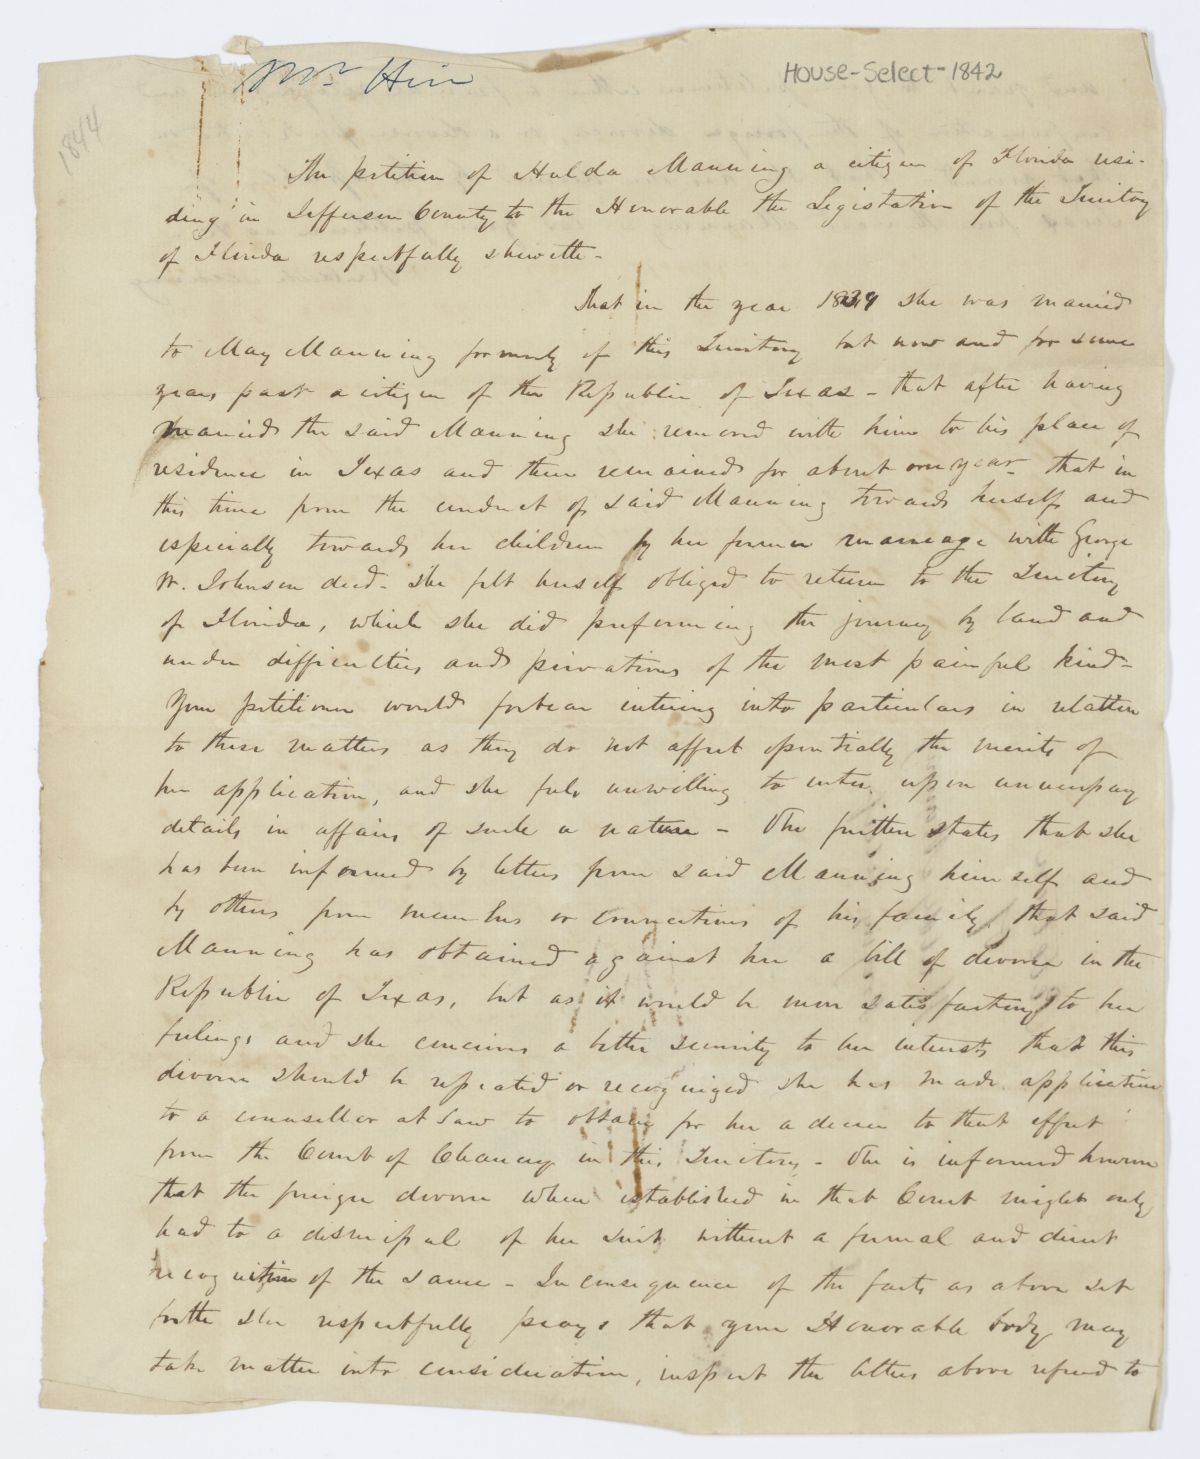 Mr Hin
House-Select-1842
1844
The petition of Hulda Manning a citizen of Florida resi-
ding in Jefferson County, to the Honorable the Legislation of the Territory
of Florida respectfully sheweth-
That in the year 1839 she was married
to May Manning formerly of this Territory but now and for some
years past a citizen of the Republic of Texas - that after having
married the said Manning she removed with him to his place of
residence in Texas and then remained for about one year - that in
this time from the conduct of said Manning towards herself and
especially towards her children by her former marriage with George
W. Johnson decd - she felt herself obliged to return to the Territory
of Florida, which she did preforming the journey by land and
under difficulties and privations of the most painful kind -
Your petitioner would forbear entering into particulars in relation
to these matters as they do not affect essentially the merits of
her application, and she feels unwilling to enter upon unnecessary
details in affairs of such a nature - She further states that she
has been informed by letters from said Manning himself and
by others from members or connections of his family, that said
Manning has obtained against her a bill of divorce in the
Republic of Texas, but as it would be more satisfactory to her
feelings and she conceives a better security to her interests that this
divorce should be repeated or recognized she has made application
to a counsellor at Law to obtain for her a decree to that effect
from the Court of Chancery in this Territory - She is informed however
that the foreign divorce when established in that Court might only
lead to a dismissal of her suit without a formal and direct
recognition of the same - In consequence of the facts as above set
forth she respectfully prays that your Honorable body may
take matter into consideration, inspect the letters above referred to